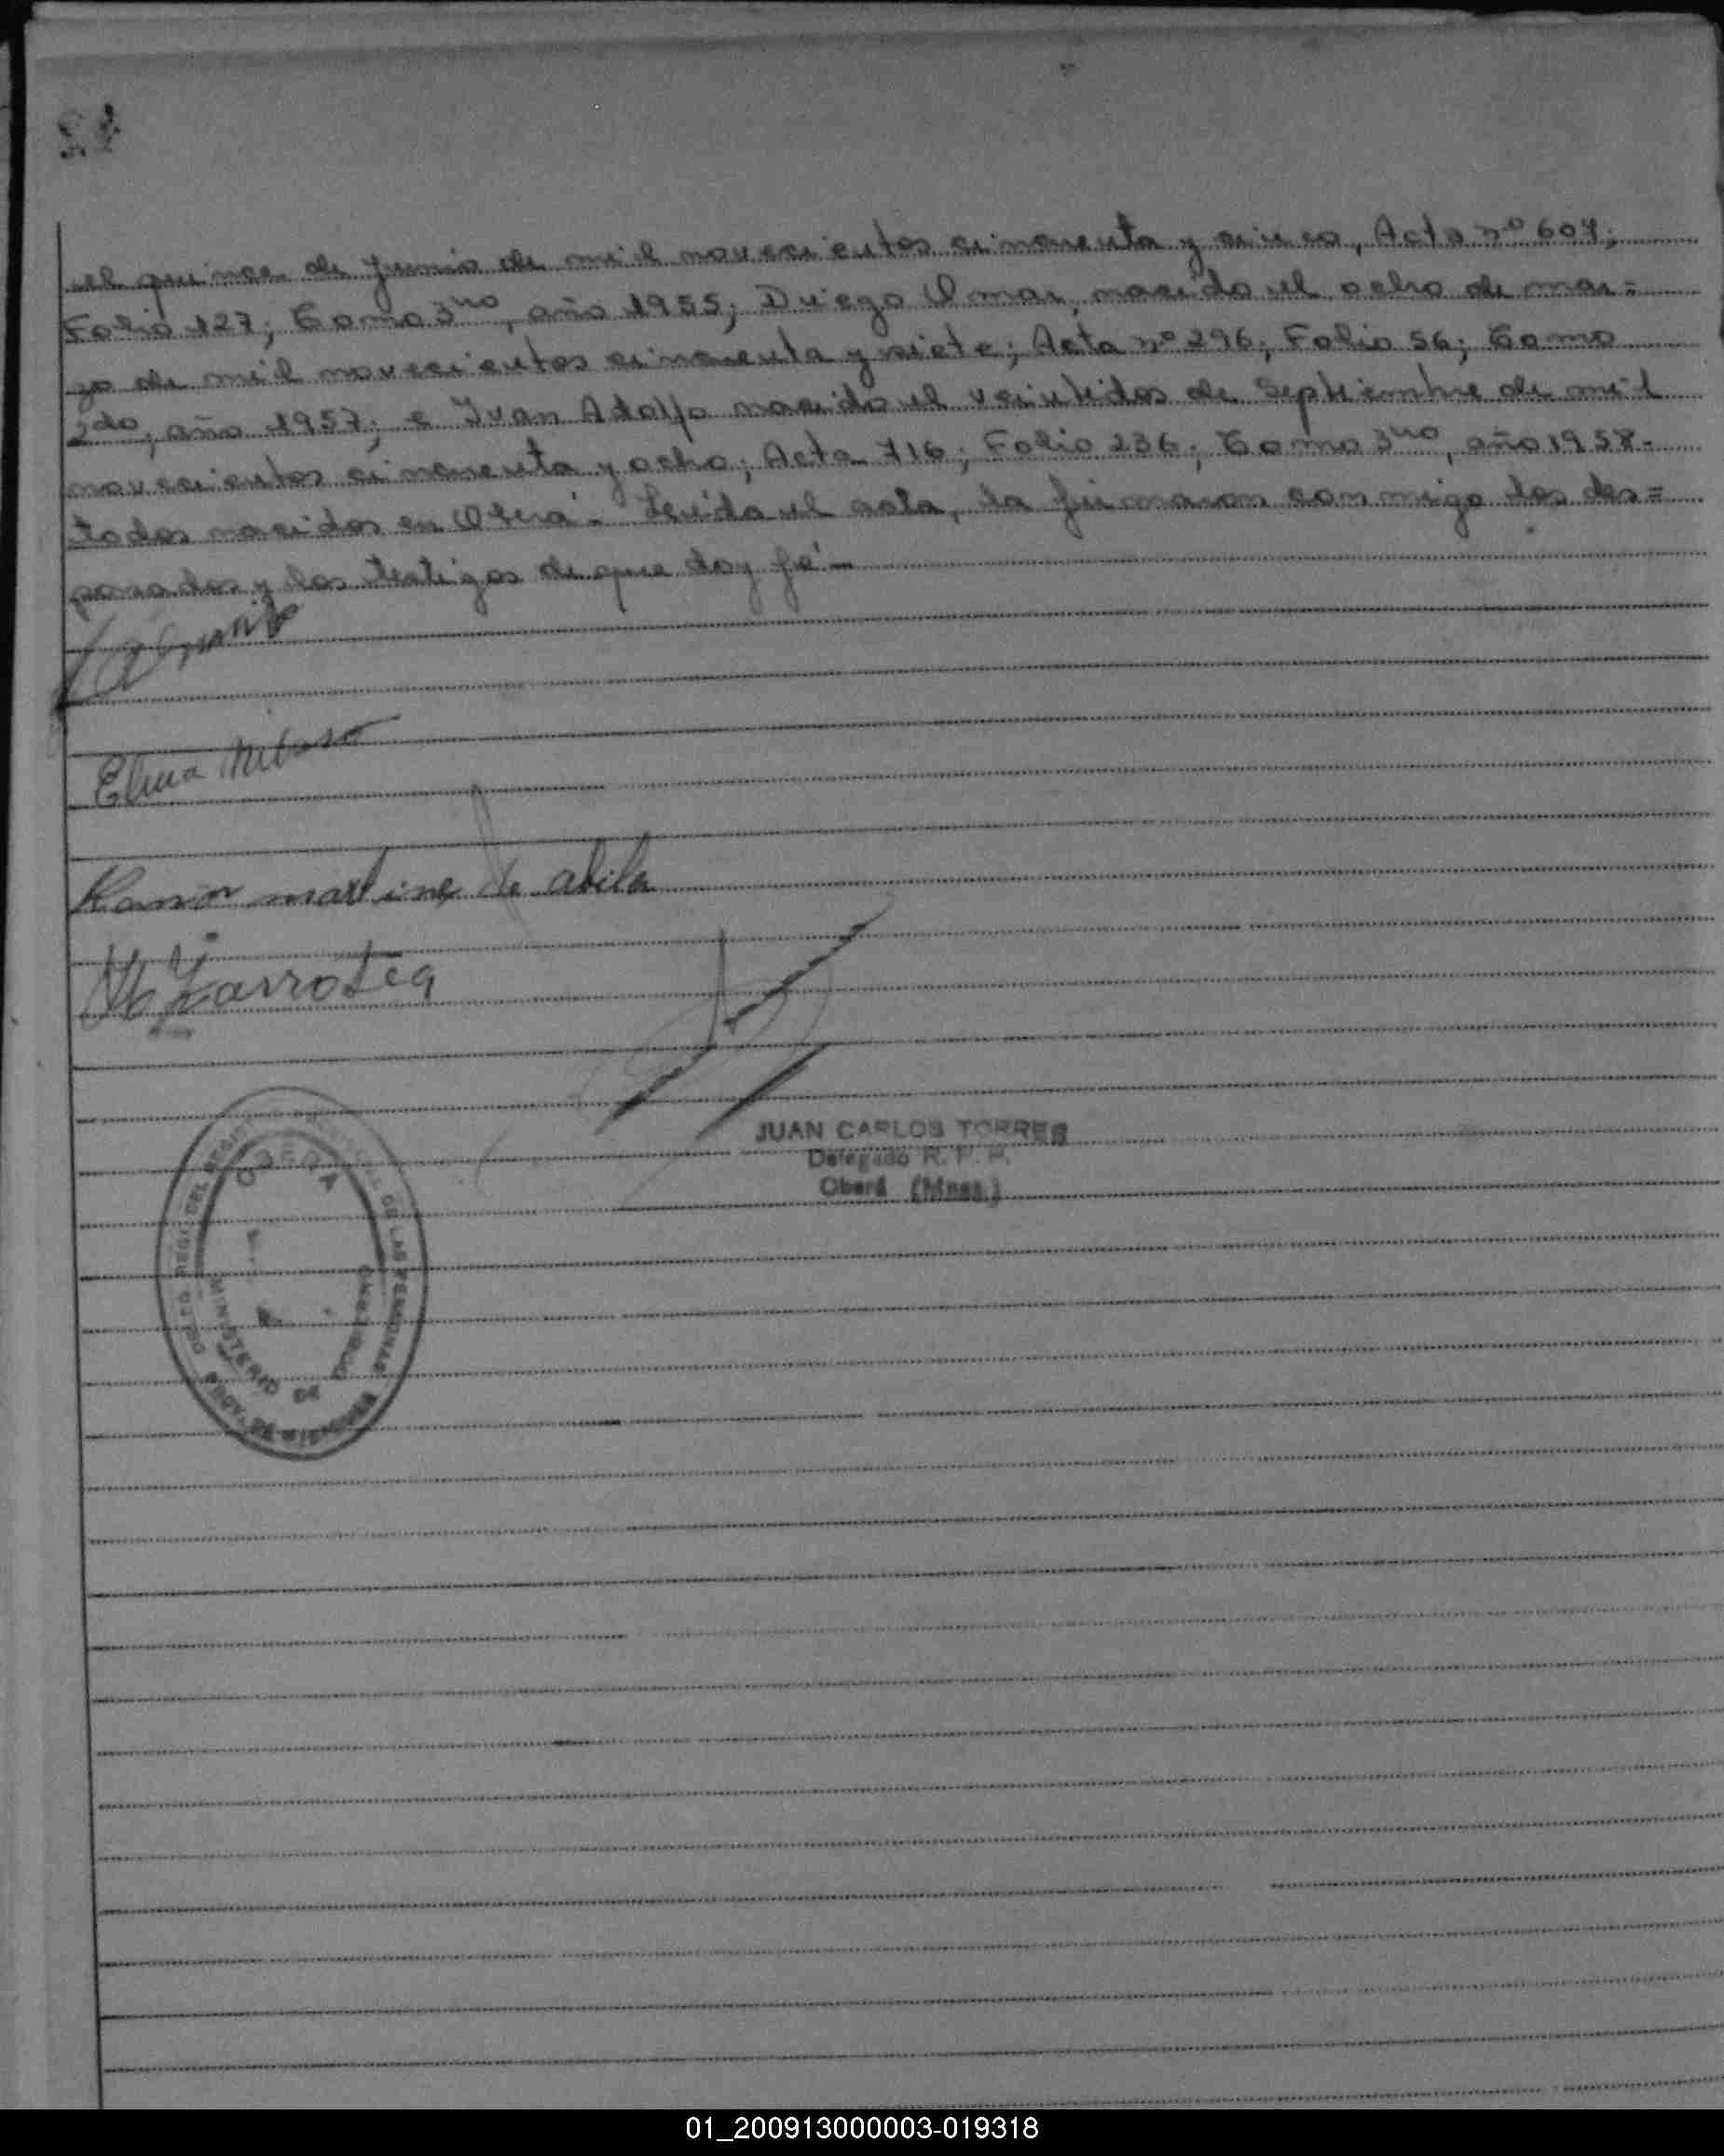 el quince de junio de mil novecientos cincuenta y cinco, Acta nº 604;
Folio 127; Tomo 3ro, año 1955; Diego Omar, nacido el ocho de mar=
zo de mil novecientos cincuenta y siete; Acta nº 296; Folio 56; Tomo
2do, año 1957; e Ivan Adolfo nacido el veintidos de Septiembre de mil
novecientos cincuenta y ocho; Acta 716; Folio 236; Tomo 3ro, año 1958.
todos nacidos en Oberá. Leída el acta, la firmaron conmigo los des=
posados y los testigos de que doy fé.
Elma
Ramón martinez de abila
JUAN CARLOS TORRES
Delegado R. P. P.
Oberá (Mnes.)
OBERA
DE LAS PERSONAS
MINISTERIO DE GOBIERNO
PROV. DE MISIONES
01_200913000003-019318